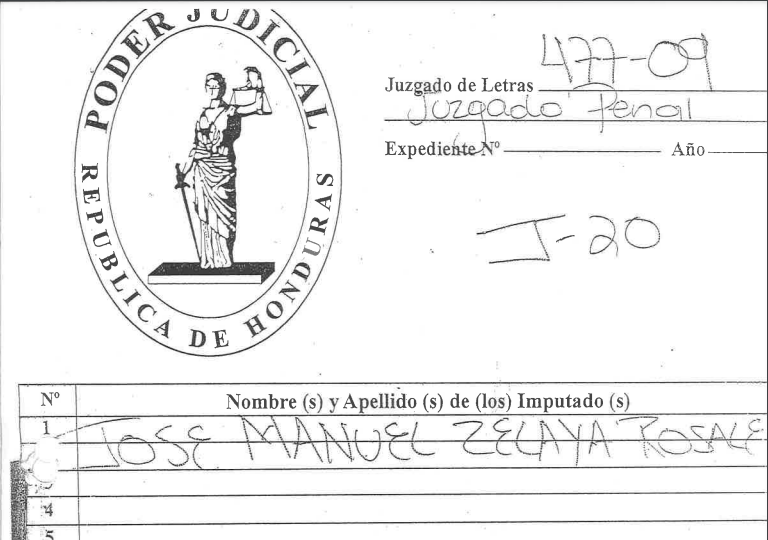 PODER JUDICIAL
REPUBLICA DE HONDURAS
477-09
Juzgado de Letras
Juzgado Penal
Expediente Nº Año
J-20
Nº Nombre (s) y Apellido (s) de (los) Imputado (s)
1 JOSE MANUEL ZELAYA ROSALE
3
4
5